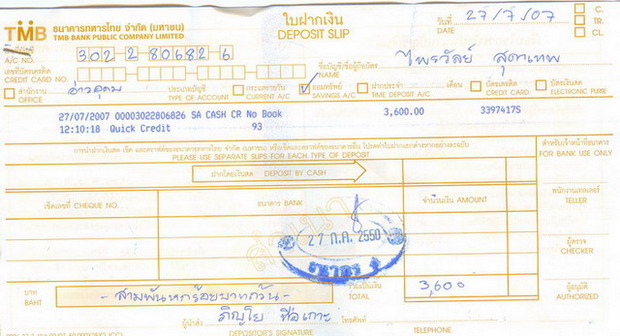 TMB ธนาคารทหารไทย จำกัด (มหาชน)
TMB BANK PUBLIC COMPANY LIMITED
ใบฝากเงิน
DEPOSIT SLIP
วันที่ DATE 27/7/07
C.
TR.
CL.
A/C NO. 302 2 80682 6
เลขที่บัตรเครดิต
CREDIT CARD NO.
ชื่อบัญชี/ชื่อผู้ถือบัตร
NAME ไพรวัลย์ สุดาเทพ
สำนักงาน
OFFICE อ่าวอุดม
ประเภทบัญชี
TYPE OF ACCOUNT
กระแสรายวัน
CURRENT A/C
ออมทรัพย์
SAVINGS A/C
ฝากประจำ เดือน
TIME DEPOSIT A/C
บัตรเครดิต
CREDIT CARD
บัตรเงินสด
ELECTRONIC PURSE
27/07/2007 00003022806826 SA CASH CR No Book 3,600.00 3397417S
12:10:18 Quick Credit 93
PLEASE USE SEPARATE SLIPS FOR EACH TYPE OF DEPOSIT
สำหรับเจ้าหน้าที่ธนาคาร
FOR BANK USE ONLY
ฝากโดยเงินสด DEPOSIT BY CASH
เช็คเลขที่ CHEQUE NO. ธนาคาร BANK จำนวนเงิน AMOUNT
พนักงานเทลเลอร์
TELLER
27 ก.ค. 2550
ผู้ตรวจ
CHECKER
บาท
BAHT
- สามพันหกร้อยบาทถ้วน -
รวมเป็นเงิน
TOTAL 3,600
ผู้อนุมัติ
AUTHORIZED
ผู้นำฝาก
DEPOSITOR'S SIGNATURE
โทรศัพท์
TELEPHONE